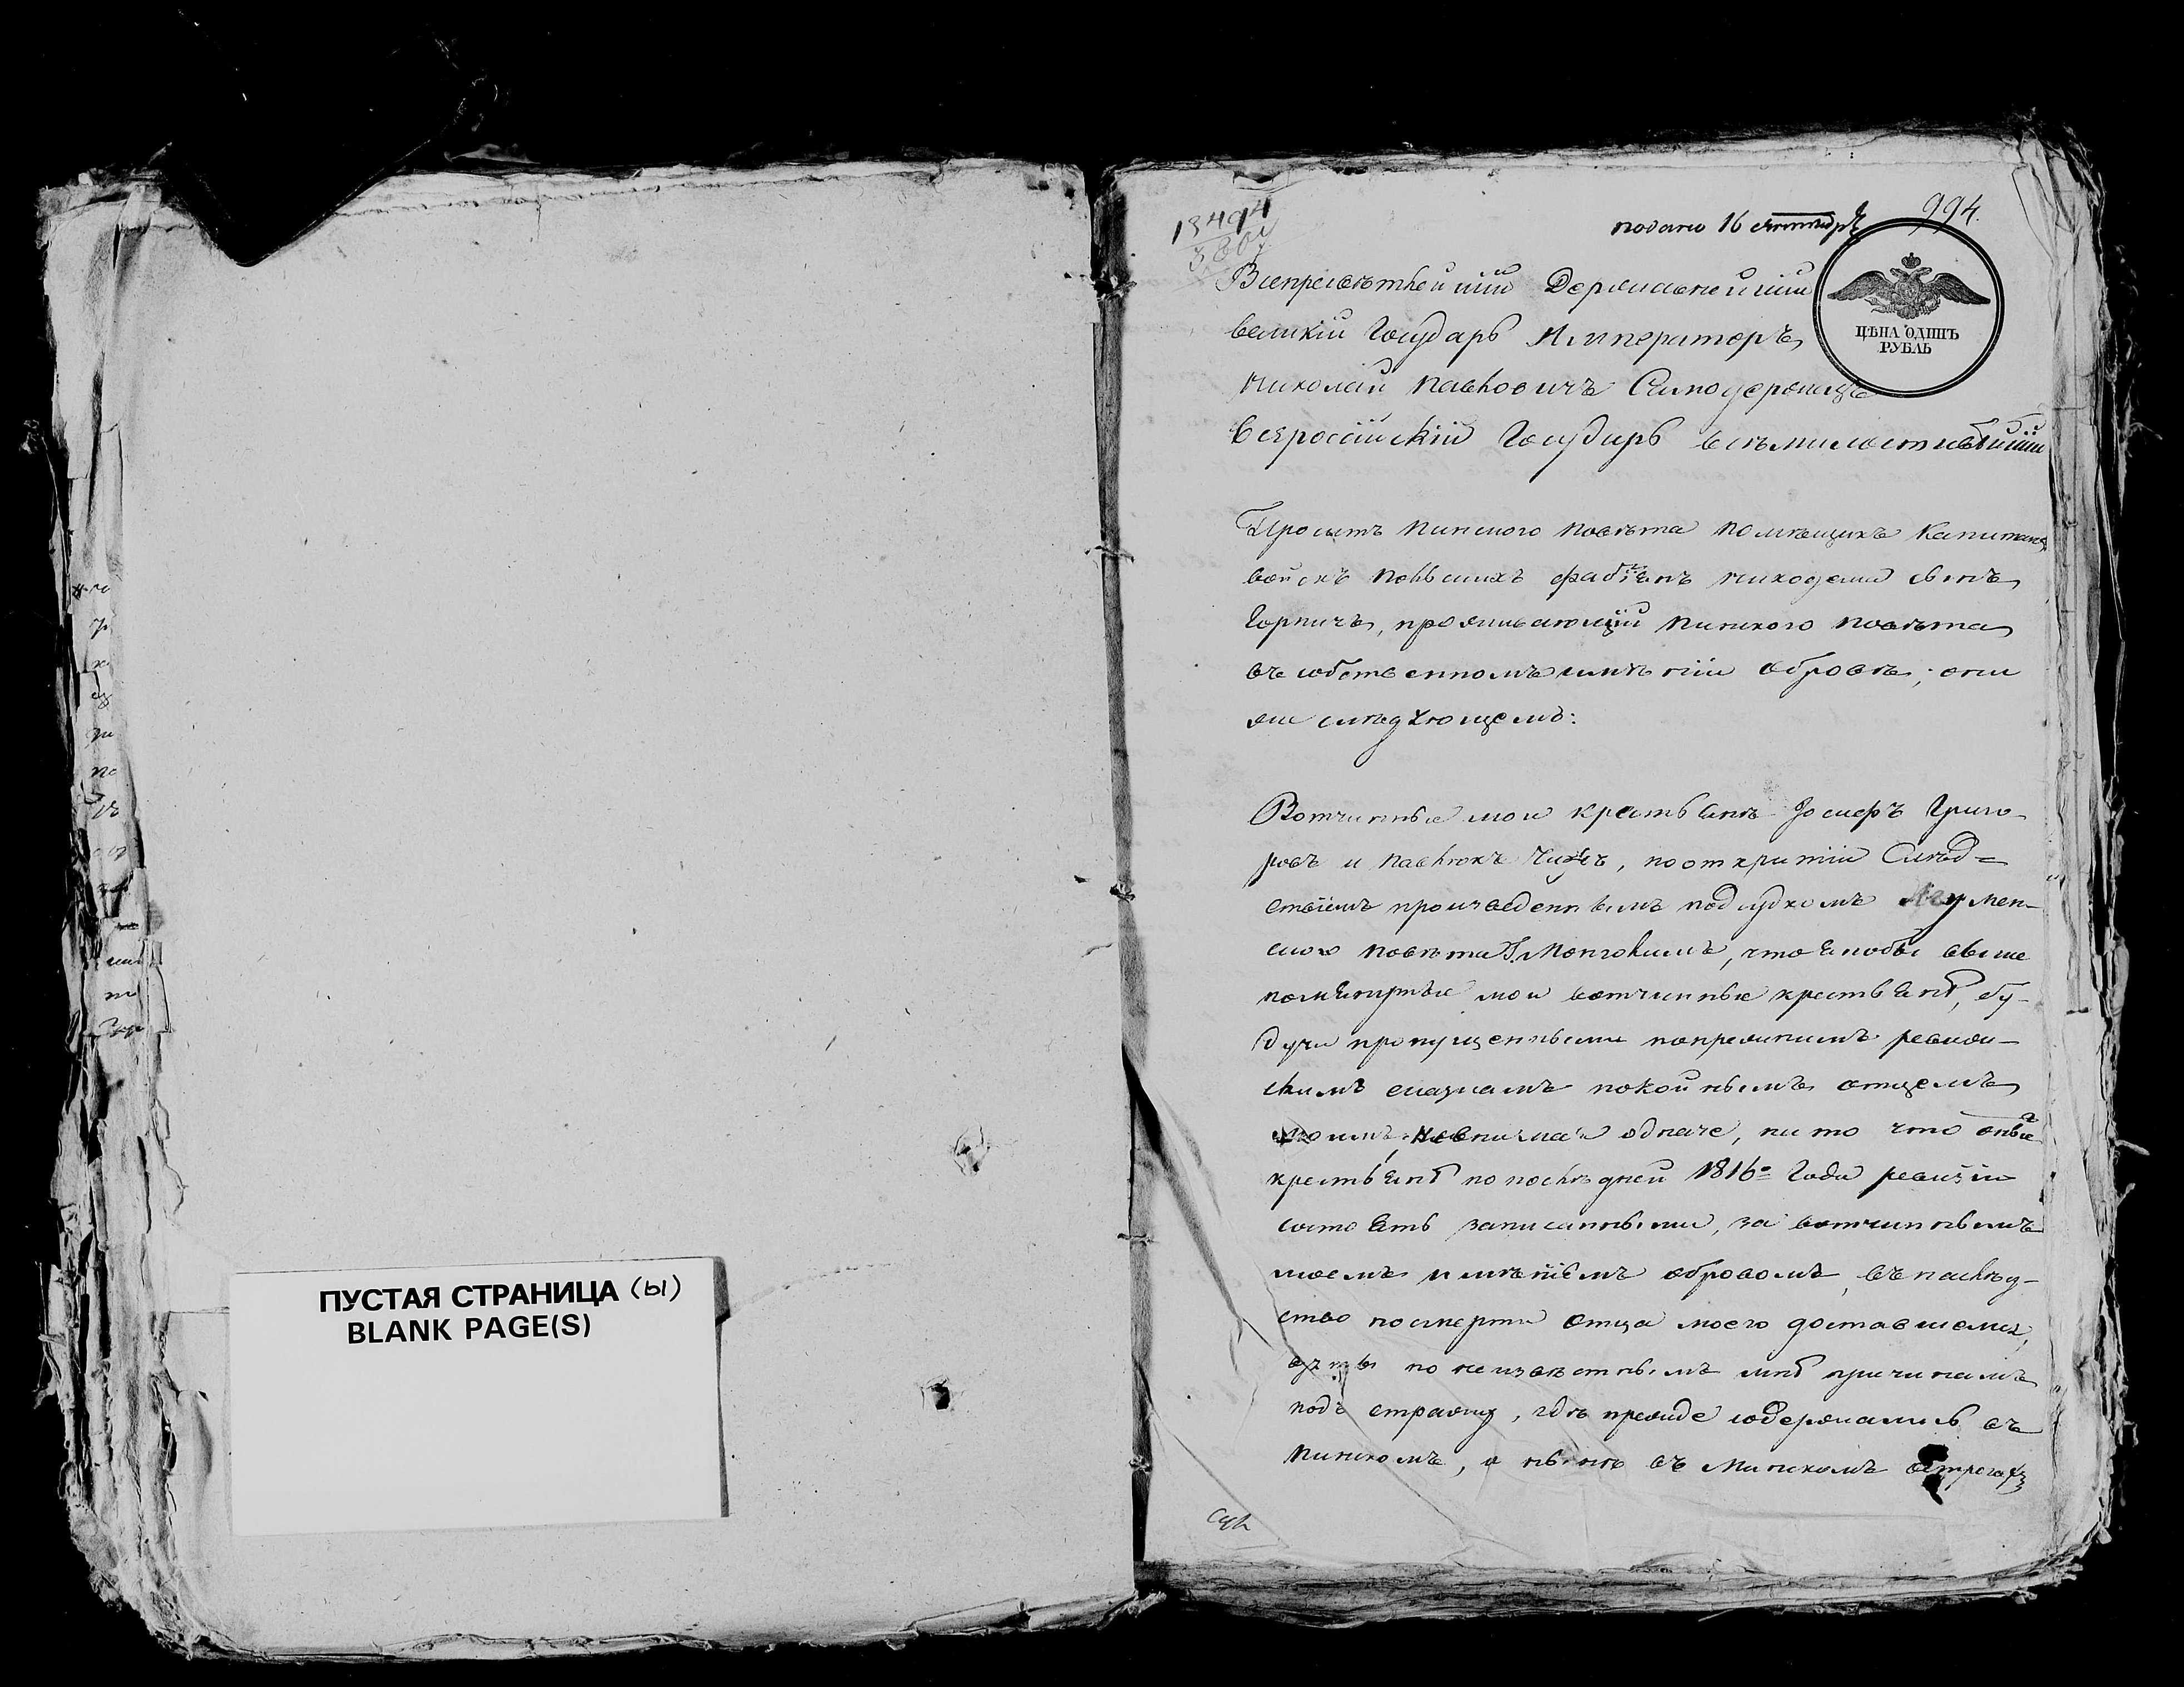 ПУСТАЯ СТРАНИЦА (ы)
BLANK PAGE(S)
13494
994.
подано 16 сентября
ЦѢНА ОДИНЪ
РУБЛЬ
Всепресвѣтлейшій Державнейшій
великій Государь Императоръ
Николай Павловичъ Самодержецъ
Всеросiйскій Государь всемилостивѣйшій
Проситъ Пинского повѣта помѣщикъ Капитанъ
войскъ Польскихъ Фабіянъ Никодема сынъ
Горничъ, проживающій Пинского повѣта
въ собственномъ имѣніи Обровѣ; о ни
же слѣдующемъ:
Вотчинные мои крестьяне Іосифъ Григо-
ровъ и Павлюкъ, по открытіи Слѣд=
ствіемъ произведеннымъ подсудкомъ Игумен-
ского повѣта, что якобы выше
помянутые мои вотчинные крестьянѣ, бу-
дучи пропущенными по прежнимъ ревизи-
скимъ сказкамъ покойнымъ отцемъ
моимъ, невнимая одначе, на то что оные
крестьянѣ по последней 1816- Года ревизіи
состоятъ записанными, за вотчиннымъ
моемъ имѣніемъ Обровомъ, въ наслѣд-
ство посмерти отца моего доставшемся,
взяты по неизвѣстнымъ мнѣ причинамъ
подъ стражу, гдѣ прежде содержались въ
Пинскомъ, а нынѣ въ Минскомъ острогахъ